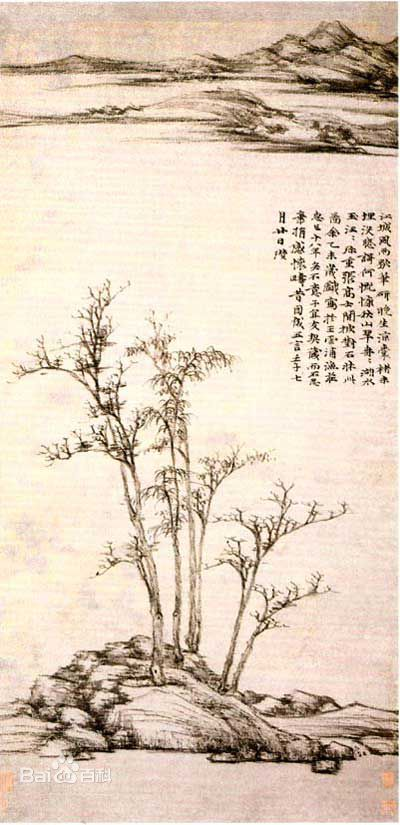 江城風雨歇筆研晚生涼囊楮未
埋沒悲歌何慨慷秋山翠冉々湖水
玉汪々珍重張高士閒披對石牀此
圖余乙未歲戲寫於王雲浦漁莊
忽已十八年矣不意子宜友契藏而不忍
棄捐感懷疇昔因成五言壬子七
月廿日瓚
Bai百科